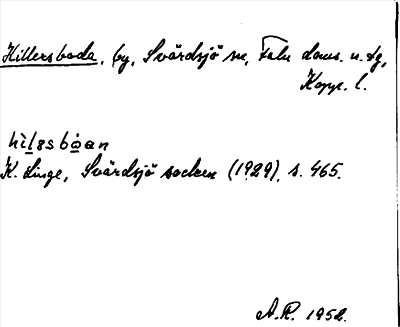 Hillersboda, by, Svärdsjö sn, Falu doms. n. tg,
Kopp. l.
hìləsbo̊an
K. Linge, Svärdsjö socken (1929), s. 465.
A.R. 1952.